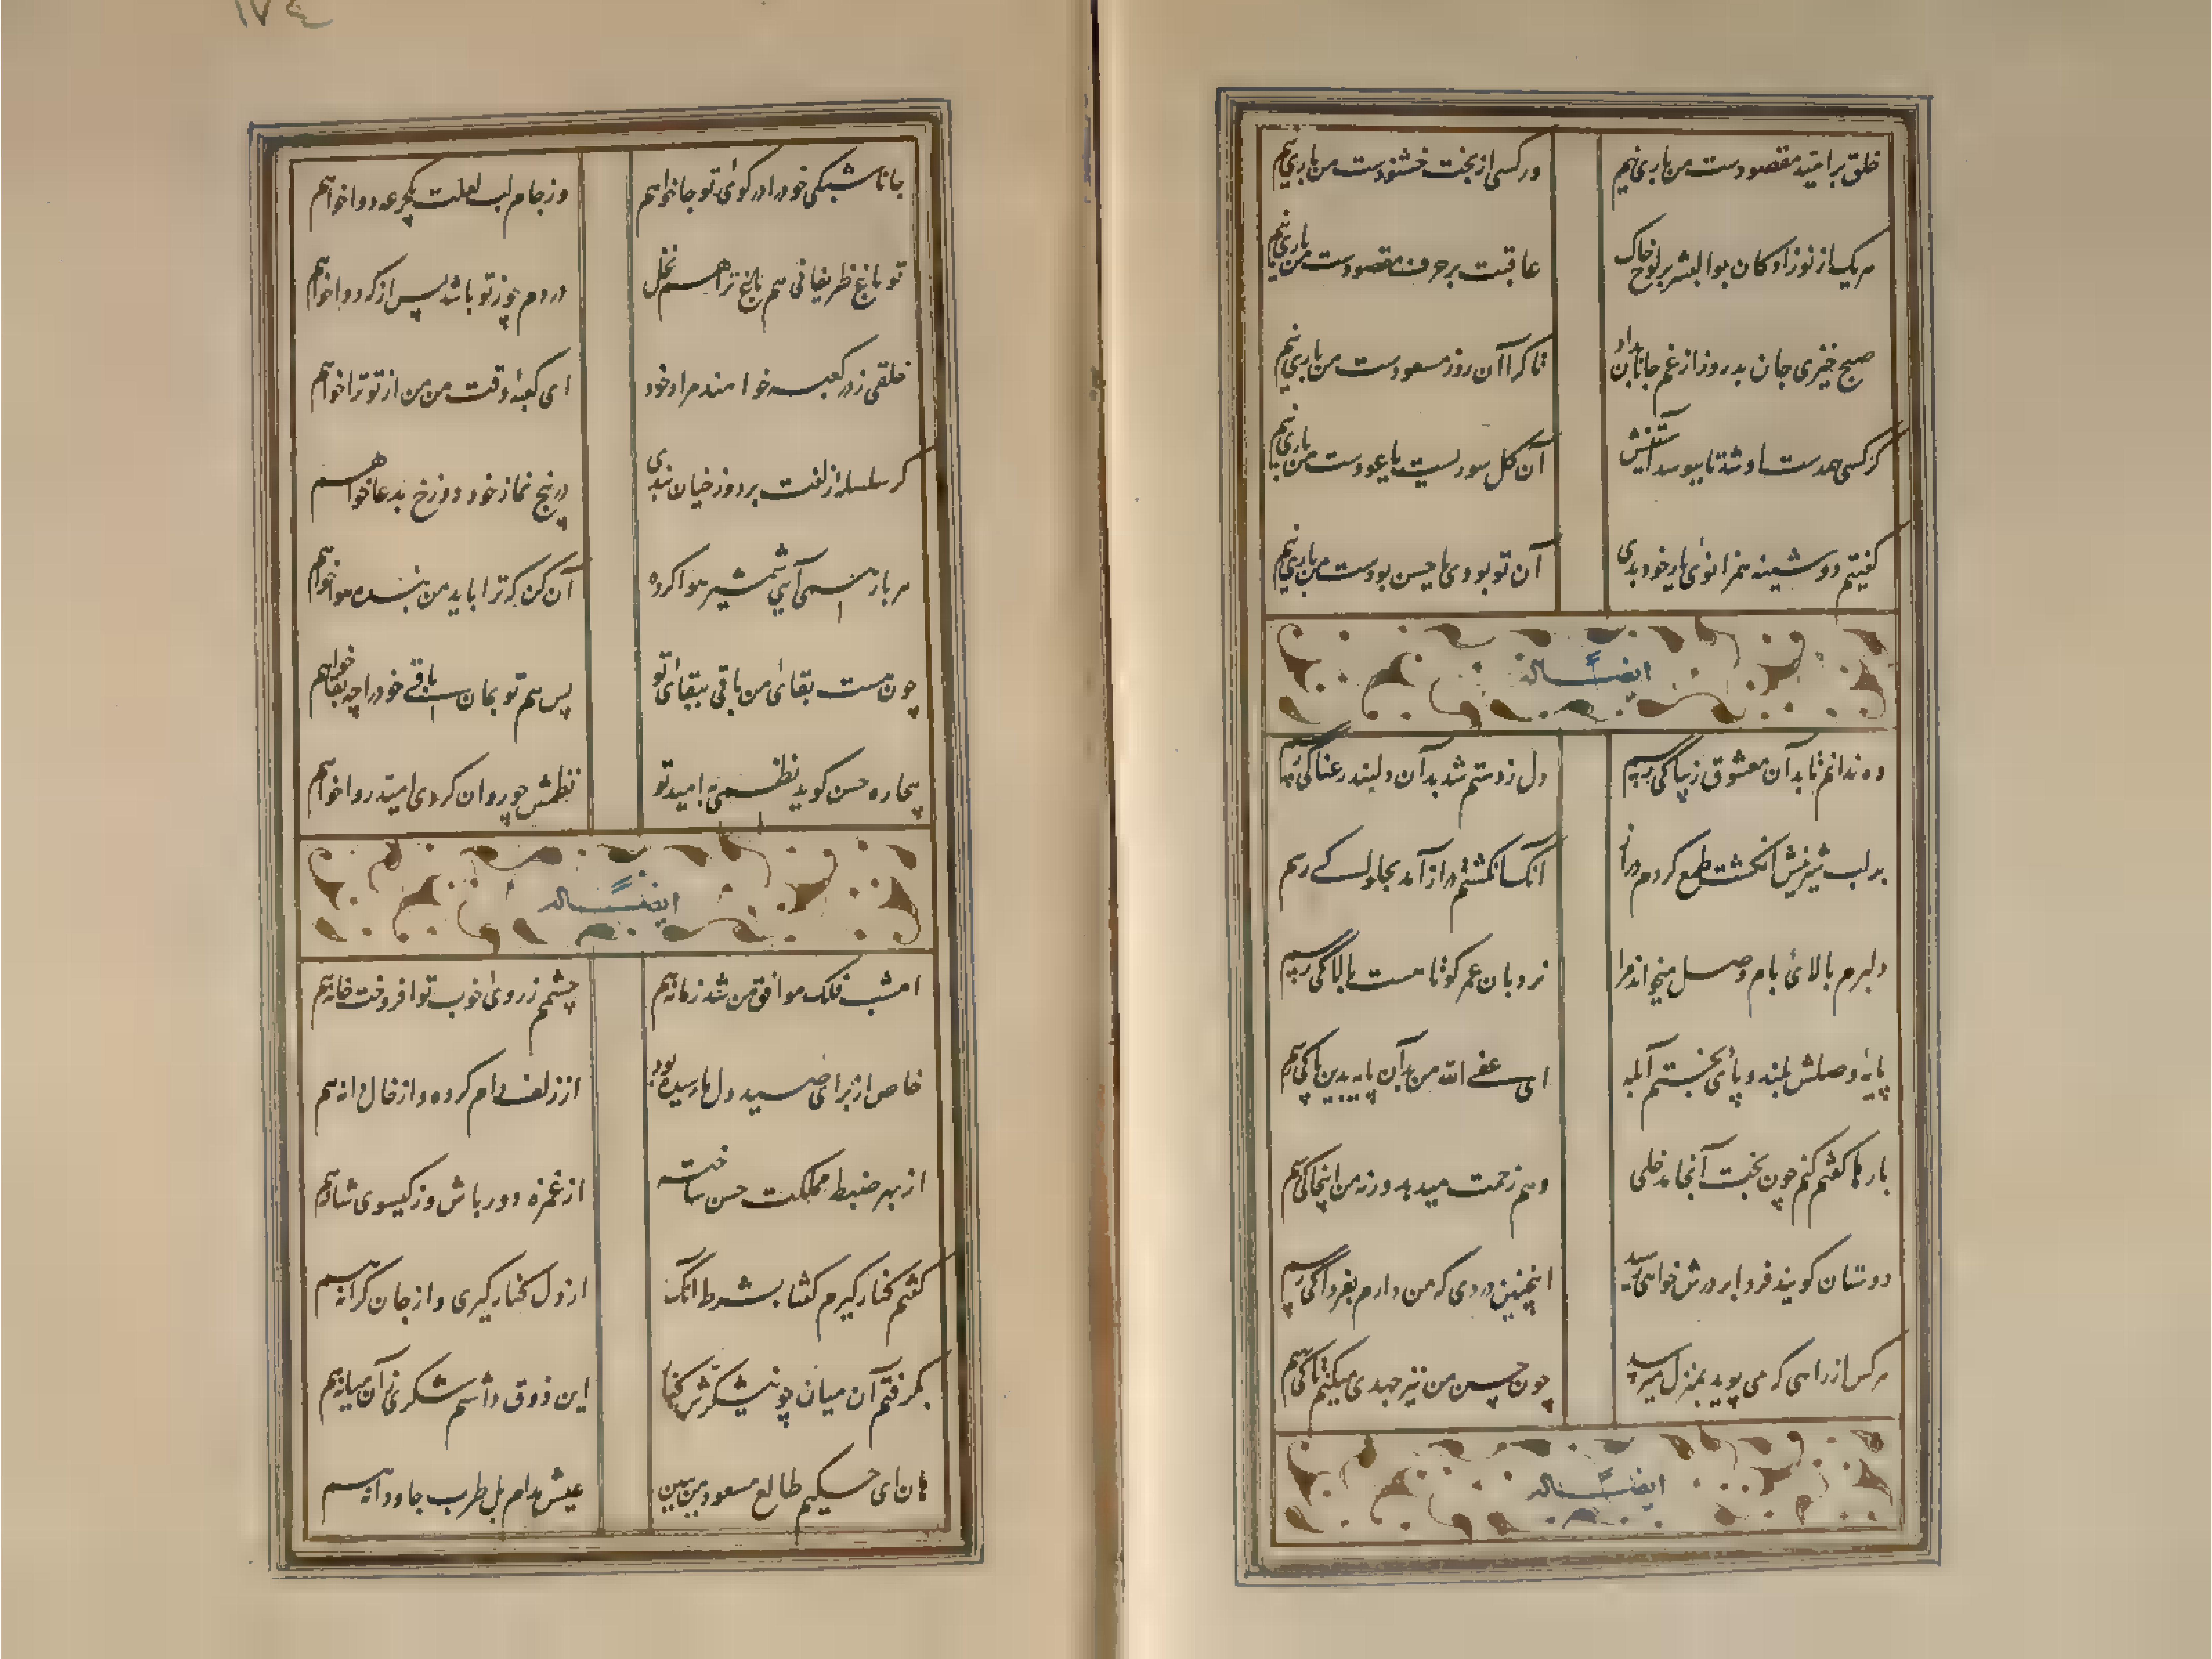 خلق بر امید مقصودست من باری نیم
ور کسی از بخت خشنودست من باری نیم
هر یک از نوزادکان بوالبشر بر لوح خاک
عاقبت بر حرف مقصودست من باری نیم
صبح خیزی جان بدروز از غم جانان بداد
تا کرا آن روز مسعودست من باری نیم
کر کسی همدست او شد تا ببوسد آستینش
آن کل سوریست یا عودست من باری نیم
کفتیم دوشینه همزانوی یار خود بدی
آن تو بودی یا حسن بودست من باری نیم
ایضاً له
وه ندانم تا بدان معشوق زیبا کی رسم
دل ز دستم شد بدان دلبند رعنا کی رسم
بر لب شیرینش انکشت طمع کردم دراز
انک انکشتم دراز آمد بحلوا کے رسم
دلبرم بالای بام وصل میخواند مرا
نردبان عمر کوتاهست بالا کی رسم
پایه وصلش بلند و پای بختم آبله
ای عفی الله من بدان پایه بدین پا کی رسم
بارها کفتم کنم چون بخت آنجا مدخلی
وهم زحمت میدهد ورنه من اینجا کی رسم
دوستان کویند فردا بر درش خواهی رسید
اینچنین دردی که من دارم بفردا کی رسم
هر کس از راهی که می پوید بمنزل میرسد
چون حسن من نیز جهدی میکنم تا کی رسم
ایضاً له
١٧٤
جانا شبکی خود را در کوی تو جا خواهم
وز جام لب لعلت یکجرعه دوا خواهم
تو باغ ظریفانی هم بالغ ترا هم نخل
دردم چو ز تو باشد پس از که دوا خواهم
خلقی ز در کعبه خواهند مراد خود
ای کعبه وقت من من از تو ترا خواهم
کر سلسله زلفت بر دوزخیان بندی
در پنج نماز خود دوزخ بدعا خواهم
هر بار همی آیی شمشیر هوا کرده
آن کن که ترا باید من بنده هوا خواهم
چون هست بقای من باقی ببقای تو
پس هم تو بمان باقے خود را چه بقا خواهم
بیچاره حسن کوید نظمی بامید تو
نظمش چو روان کردی امید روا خواهم
ایضاً له
امشب فلک موافق من شد زمانه هم
چشمم ز روی خوب تو افروخت خانه هم
خاص از برای صید دل ما رسیده بود
از زلف دام کرده و از خال دانه هم
از بهر ضبط مملکت حسن ساخته
از غمزه دورباش وز کیسوی شانه هم
کفتم کنار کیرم کفتا بشرط انک
از دل کنار کیری و از جان کرانه هم
بکرفتم آن میان چو نیشکرش کنار
این ذوق داشتم شکری زان میانه هم
هان ای حکیم طالع مسعود من ببین
عیش مدام بل طرب جاودانه هم